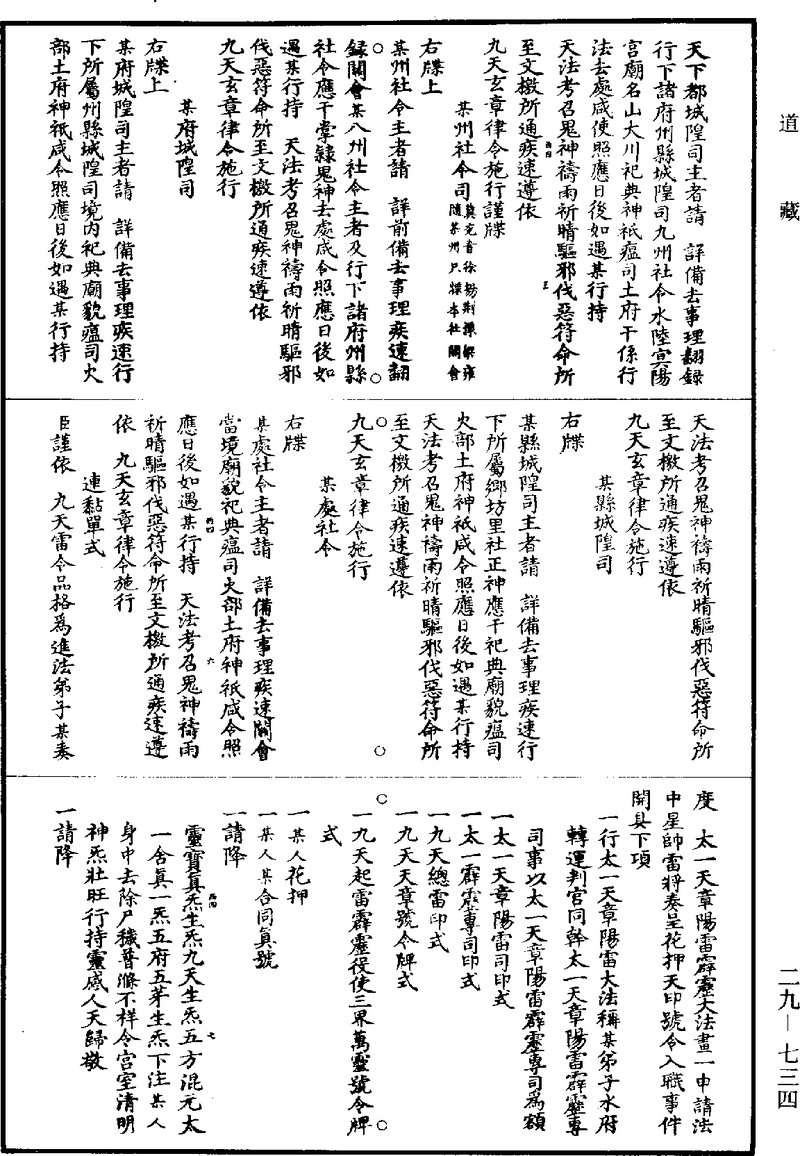 道藏
天下都城隍司主者請　詳備去事理翻録
行下諸府州縣城隍司九州社令水陸冥陽
宮廟名山大川祀典神祇瘟司土府干係行
法去處咸使照應日後如遇某行持
天法考召鬼神禱雨祈晴驅邪伐惡符命所
至文檄所通疾速遵依
九天玄章律令施行謹牒
某州社令司冀兗青徐揚荆豫梁雍
隨某州只牒本社關會
右牒上
某州社令主者請　詳前備去事理疾速翻
録關會某八州社令主者及行下諸府州縣
社令應干掌隸鬼神去處咸令照應日後如
遇某行持　天法考召鬼神禱雨祈晴驅邪
伐惡符命所至文檄所通疾速遵依
九天玄章律令施行
某府城隍司
右牒上
某府城隍司主者請　詳備去事理疾速行
下所屬州縣城隍司境内祀典廟貌瘟司火
部土府神祇咸令照應日後如遇某行持
天法考召鬼神禱雨祈晴驅邪伐惡符命所
至文檄所通疾速遵依
九天玄章律令施行
某縣城隍司
右牒
某縣城隍司主者請　詳備去事理疾速行
下所屬鄉坊里社正神應干祀典廟貌瘟司
火部土府神祇咸令照應日後如遇某行持
天法考召鬼神禱雨祈晴驅邪伐惡符命所
至文檄所通疾速遵依
九天玄章律令施行
某處社令
右牒
某處社令主者請　詳備去事理疾速關會
當境廟貌祀典瘟司火部土府神祇咸令照
應日後如遇某行持　天法考召鬼神禱雨
祈晴驅邪伐惡符命所至文檄所通疾速遵
依　九天玄章律令施行
連黏單式
臣謹依　九天雷令品格爲進法弟子某奏
度　太一天章陽雷霹靂大法畫一申請法
中星帥雷將奏呈花押天印號令入職事件
開具下項
一行太一天章陽雷大法稱某弟子水府
轉運判官同幹太一天章陽雷霹靂專
司事以太一天章陽雷霹靂專司爲額
一太一天章陽雷司印式
一太一霹靂專司印式
一九天總雷印式
一九天天章號令牌式
一九天起雷霹靂役使三界萬靈號令牌
式
一某人花押
一某人某合同眞號
一請降
靈寶眞炁生炁九天生炁五方混元太
一含眞一炁五府五芽生炁下注某人
身中去除尸穢普滌不祥令宮室清明
神炁壯旺行持靈感人天歸敬
一請降
二九—七三四